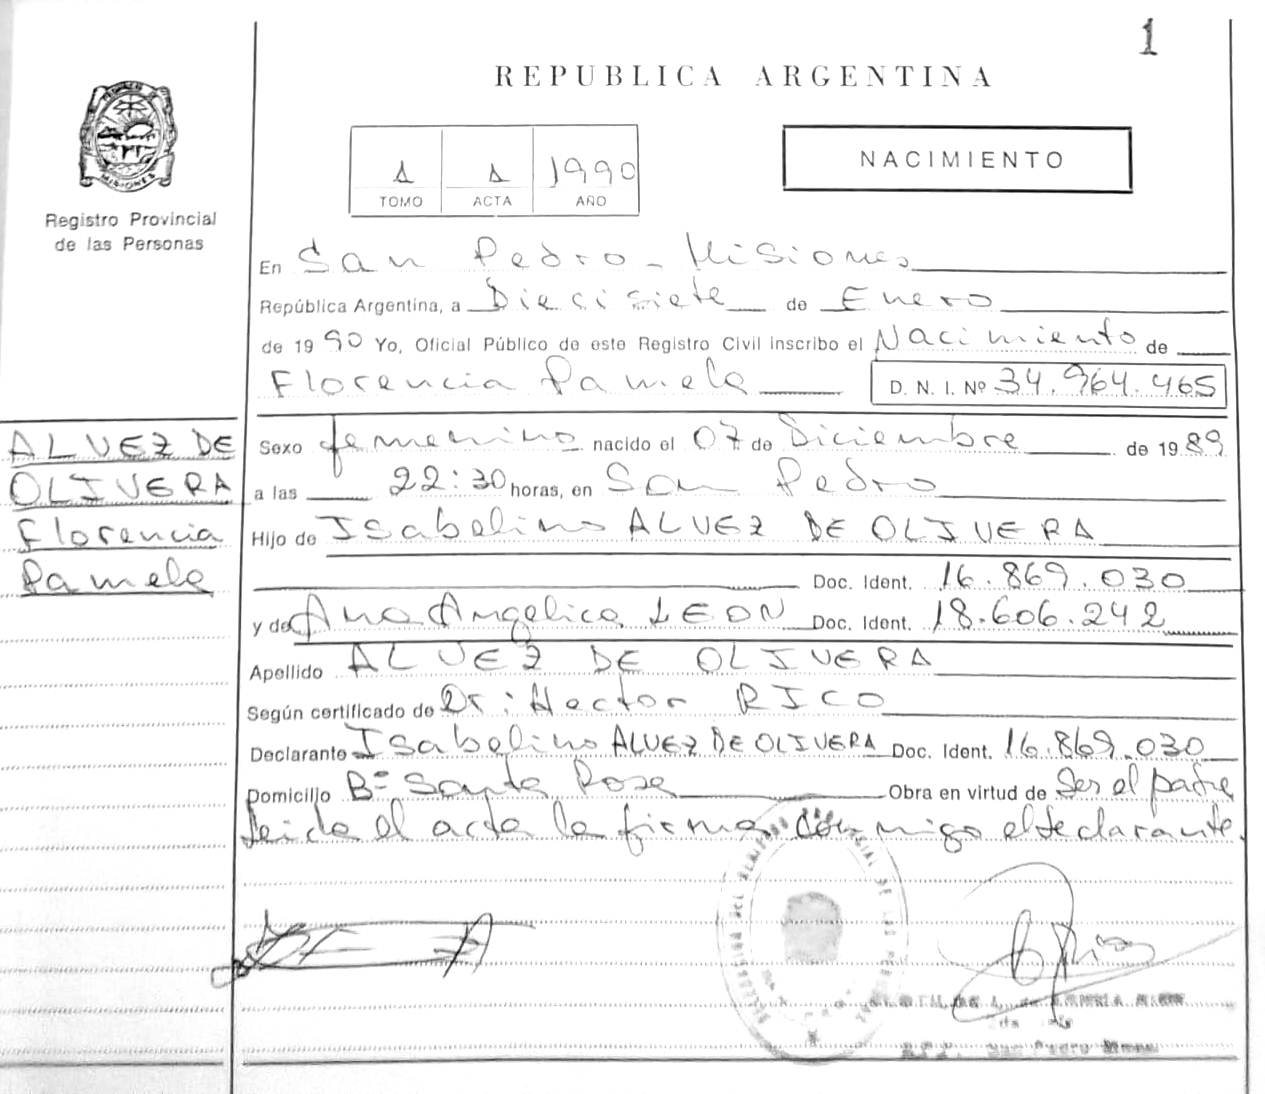 1
REPUBLICA ARGENTINA
MISIONES
Registro Provincial
de las Personas
1 1 1990
TOMO ACTA AÑO
NACIMIENTO
En San Pedro - Misiones
República Argentina, a Diecisiete de Enero
de 1990 Yo, Oficial Público de este Registro Civil inscribo el Nacimiento de
Florencia Pamela D. N. I. Nº 34.964.465
ALVEZ DE
OLIVERA
Florencia
Pamela
Sexo femenino nacido el 07 de Diciembre de 1989
a las 22:30 horas, en San Pedro
Hijo de Isabelino ALVEZ DE OLIVERA
Doc. Ident. 16.869.030
y de Ana Angelica LEON Doc. Ident. 18.606.242
Apellido ALVEZ DE OLIVERA
Según certificado de Dr: Hector RICO
Declarante Isabelino ALVEZ DE OLIVERA Doc. Ident. 16.869.030
Domicilio Bº Santa Rosa Obra en virtud de Ser el padre
leida el acta la firma conmigo el declarante.
San Pedro